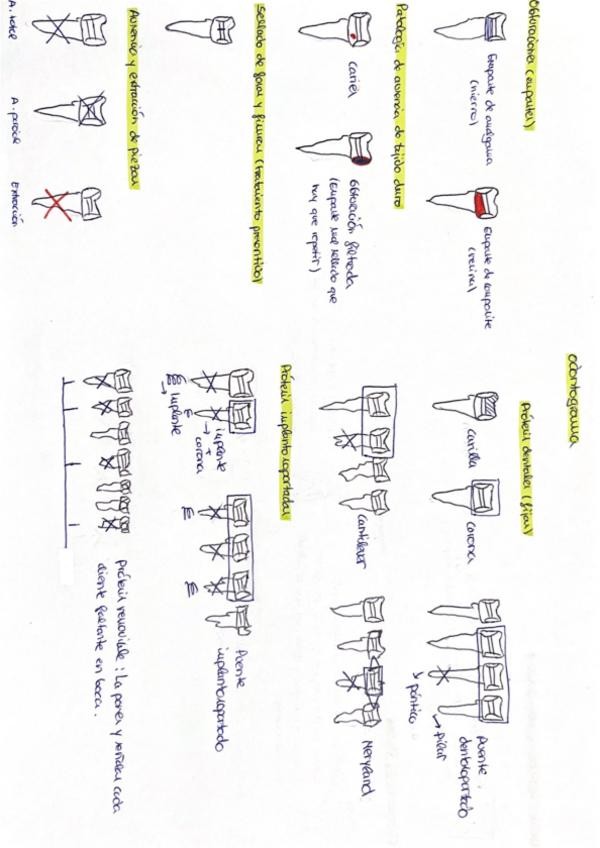 odontograma
Obturaciones (empastes)
Empaste de amalgama
(hierro)
Empaste de composite
(resina)
Patología de ausencia de tejido duro
caries
Obturación filtrada
(empaste mal sellado que
hay que repetir)
Sellado de fosas y fisuras (tratamiento preventivo)
Ausencia y extracción de piezas
A. total
A. parcial
Extracción
Prótesis dentales (fijas)
carilla
corona
Puente
dentosoportado
→ pilar
póntico
cantilever
Maryland
Prótesis implantosoportadas
implante
+
corona
→ implante
Puente
implantosoportado
Prótesis removible: La pones y señalas cada
diente faltante en boca.